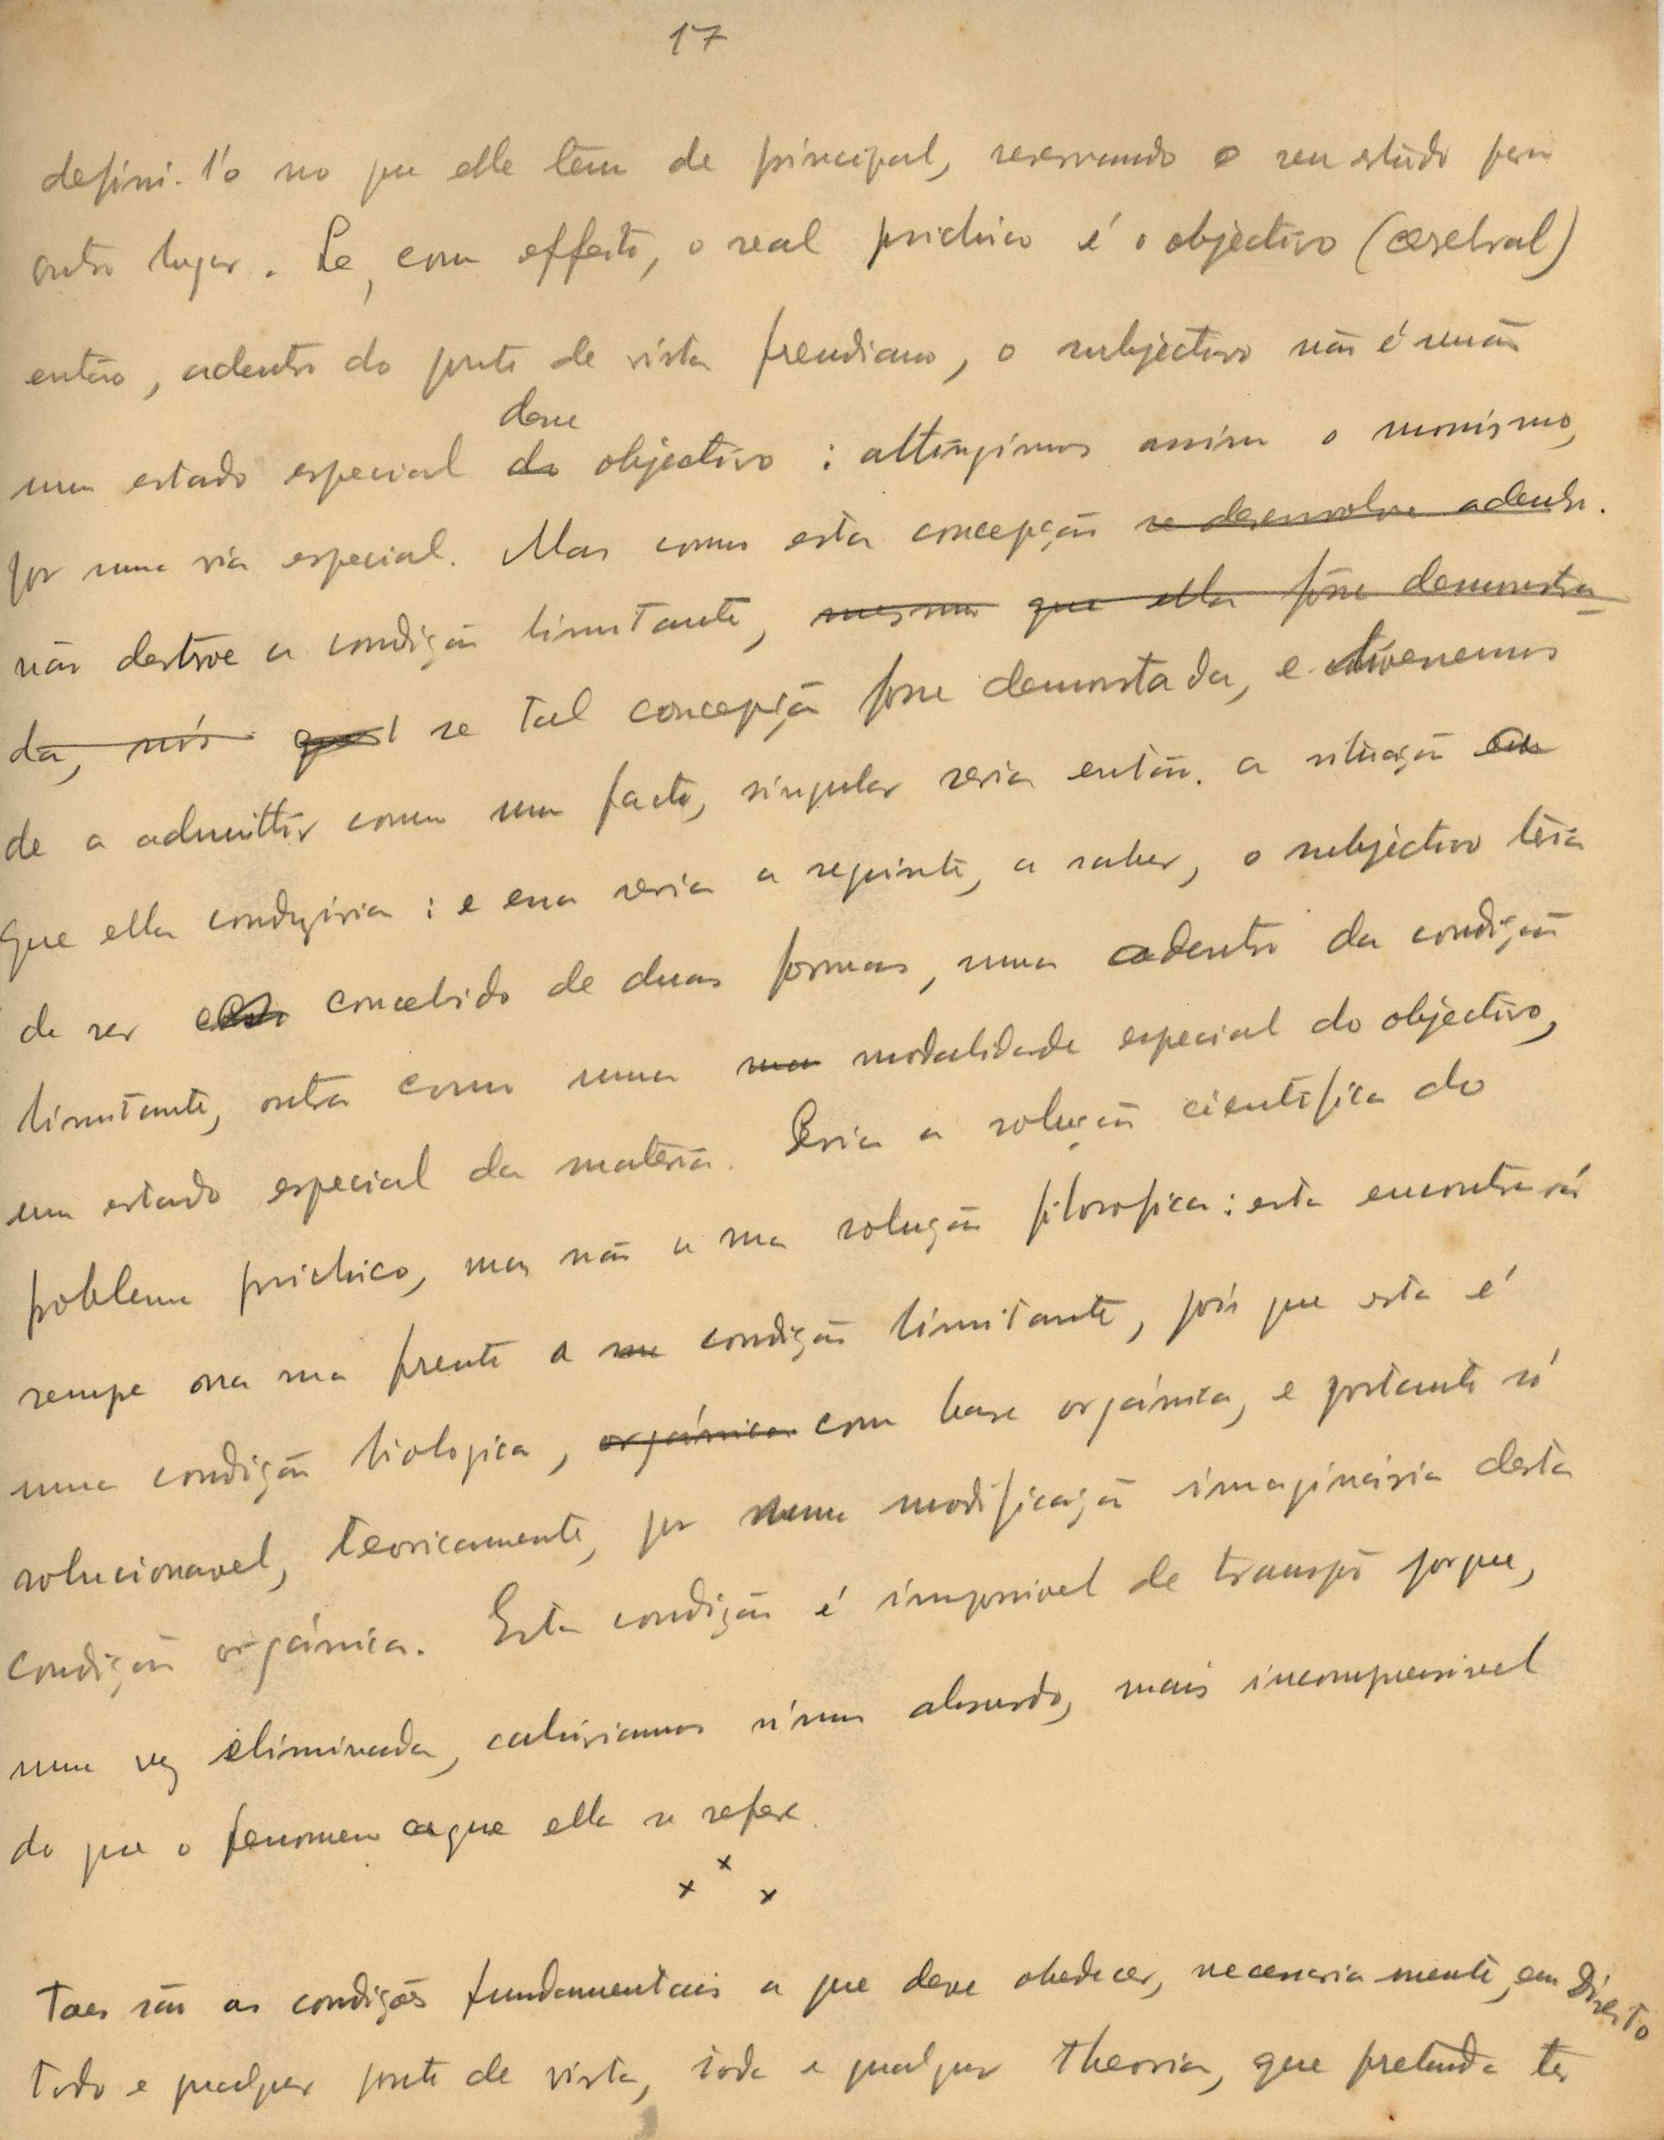 17
defini-l'o no que elle têm de principal, reservando o seu estudo para
outro lugar. Se, com effeito, o real psichico é o objectivo (cerebral)
então, adentro do ponto de vista freudiano, o subjectivo não é senão
desse
um estado especial do objectivo : attingimos assim o monismo,
por uma via especial. Mas como esta concepção se desenvolve adentro.
não destroe a condição limitante, mesmo que ella fôsse demonstra-
da, nós que se tal concepção fosse demonstada, e tivessemos
de a admittir como um facto, singular seria então. a situação
que ella conduziria : e essa seria a seguinte, a saber, o subjectivo teria
de ser concebido de duas formas, uma adentro da condição
limitante, outra como uma modalidade especial do objectivo,
um estado especial da materia. Seria a solução cientifica do
problema psichico, mas não a sua solução filosofica : esta encontrará
sempe na sua frente a condição limitante, pois que esta é
uma condição biologica, orgánica com base orgánica, e portanto só
solucionavel, teoricamente, por uma modificação imaginária desta
condição orgánica. Esta condição é impossivel de transpôr porque,
uma vez eliminada, cahiriamos n'um absurdo, mais incompreensivel
do que o fenomeno a que ella se refere.
x x x
Taes são as condições fundamentais a que deve obedecer, necessariamente, em Direito
todo e qualquer ponto de vista, toda e qualquer theoria, que pretenda ter